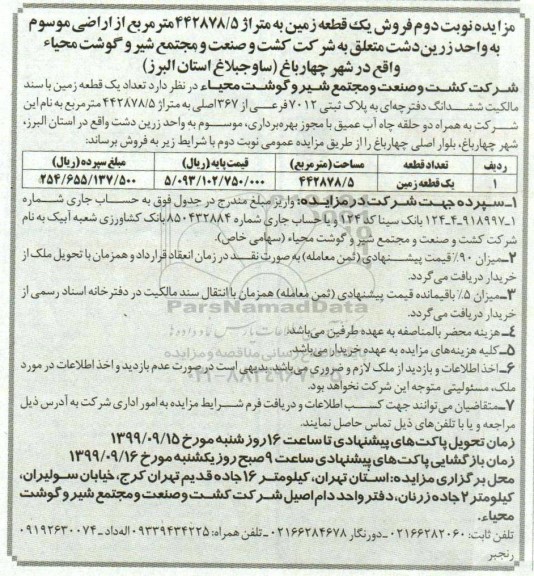 مزایده نوبت دوم فروش یک قطعه زمین به متراژ ۴۴۲۸۷۸/۵ مترمربع از اراضی موسوم
به واحد زرین دشت متعلق به شرکت کشت و صنعت و مجتمع شیر و گوشت محیاء
واقع در شهر چهارباغ (ساوجبلاغ استان البرز)
شرکت کشت و صنعت و مجتمع شیر و گوشت محیاء در نظر دارد تعداد یک قطعه زمین با سند
مالکیت ششدانگ دفترچه‌ای به پلاک ثبتی ۷۰۱۲ فرعی از ۳۶۷ اصلی به متراژ ۴۴۲۸۷۸/۵ مترمربع به نام این
شرکت به همراه دو حلقه چاه آب عمیق با مجوز بهره‌برداری، موسوم به واحد زرین دشت واقع در استان البرز،
شهر چهارباغ، بلوار اصلی چهارباغ را از طریق مزایده عمومی نوبت دوم با شرایط زیر به فروش برساند:
ردیف تعداد قطعه مساحت (مترمربع) قیمت پایه (ریال) مبلغ سپرده (ریال)
۱ یک قطعه زمین ۴۴۲۸۷۸/۵ ۵/۰۹۳/۱۰۲/۷۵۰/۰۰۰ ۲۵۴/۶۵۵/۱۳۷/۵۰۰
۱ـ سپرده جهت شرکت در مزایده: واریز مبلغ مندرج در جدول فوق به حساب جاری شماره
۱ـ۹۱۸۹۹۷ـ۴ـ۱۲۴ بانک سینا کد ۱۲۴ و یا حساب جاری شماره ۸۵۰۴۳۲۸۸۴ بانک کشاورزی شعبه آبیک به نام
شرکت کشت و صنعت و مجتمع شیر و گوشت محیاء (سهامی خاص).
۲ـ میزان ۹۰٪ قیمت پیشنهادی (ثمن معامله) به صورت نقد در زمان انعقاد قرارداد و همزمان با تحویل ملک از
خریدار دریافت می‌گردد.
۳ـ میزان ۵٪ باقیمانده قیمت پیشنهادی (ثمن معامله) همزمان با انتقال سند مالکیت در دفترخانه اسناد رسمی از
خریدار دریافت می‌گردد.
۴ـ هزینه محضر بالمناصفه به عهده طرفین می‌باشد.
۵ـ کلیه هزینه‌های مزایده به عهده خریدار می‌باشد.
۶ـ اخذ اطلاعات و بازدید از ملک لازم و ضروری می‌باشد. بدیهی است در صورت عدم بازدید و اخذ اطلاعات در مورد
ملک، مسئولیتی متوجه این شرکت نخواهد بود.
۷ـ متقاضیان می‌توانند جهت کسب اطلاعات و دریافت فرم شرایط مزایده به امور اداری شرکت به آدرس ذیل
مراجعه و یا با تلفن‌های ذیل تماس حاصل نمایند.
زمان تحویل پاکت‌های پیشنهادی تا ساعت ۱۶ روز شنبه مورخ ۱۳۹۹/۰۹/۱۵
زمان بازگشایی پاکت‌های پیشنهادی ساعت ۹ صبح روز یکشنبه مورخ ۱۳۹۹/۰۹/۱۶
محل برگزاری مزایده: استان تهران، کیلومتر ۱۶ جاده قدیم تهران کرج، خیابان سولیران،
کیلومتر ۲ جاده زرنان، دفتر واحد دام اصیل شرکت کشت و صنعت و مجتمع شیر و گوشت
محیاء.
تلفن ثابت: ۰۲۱۶۶۲۸۲۰۶۰ ـ دورنگار ۰۲۱۶۶۲۸۴۶۷۸ ـ تلفن همراه: ۰۹۳۳۹۴۳۴۲۲۵ اله‌داد ـ ۰۹۱۹۲۶۳۰۰۷۴
رنجبر
ParsNamadData